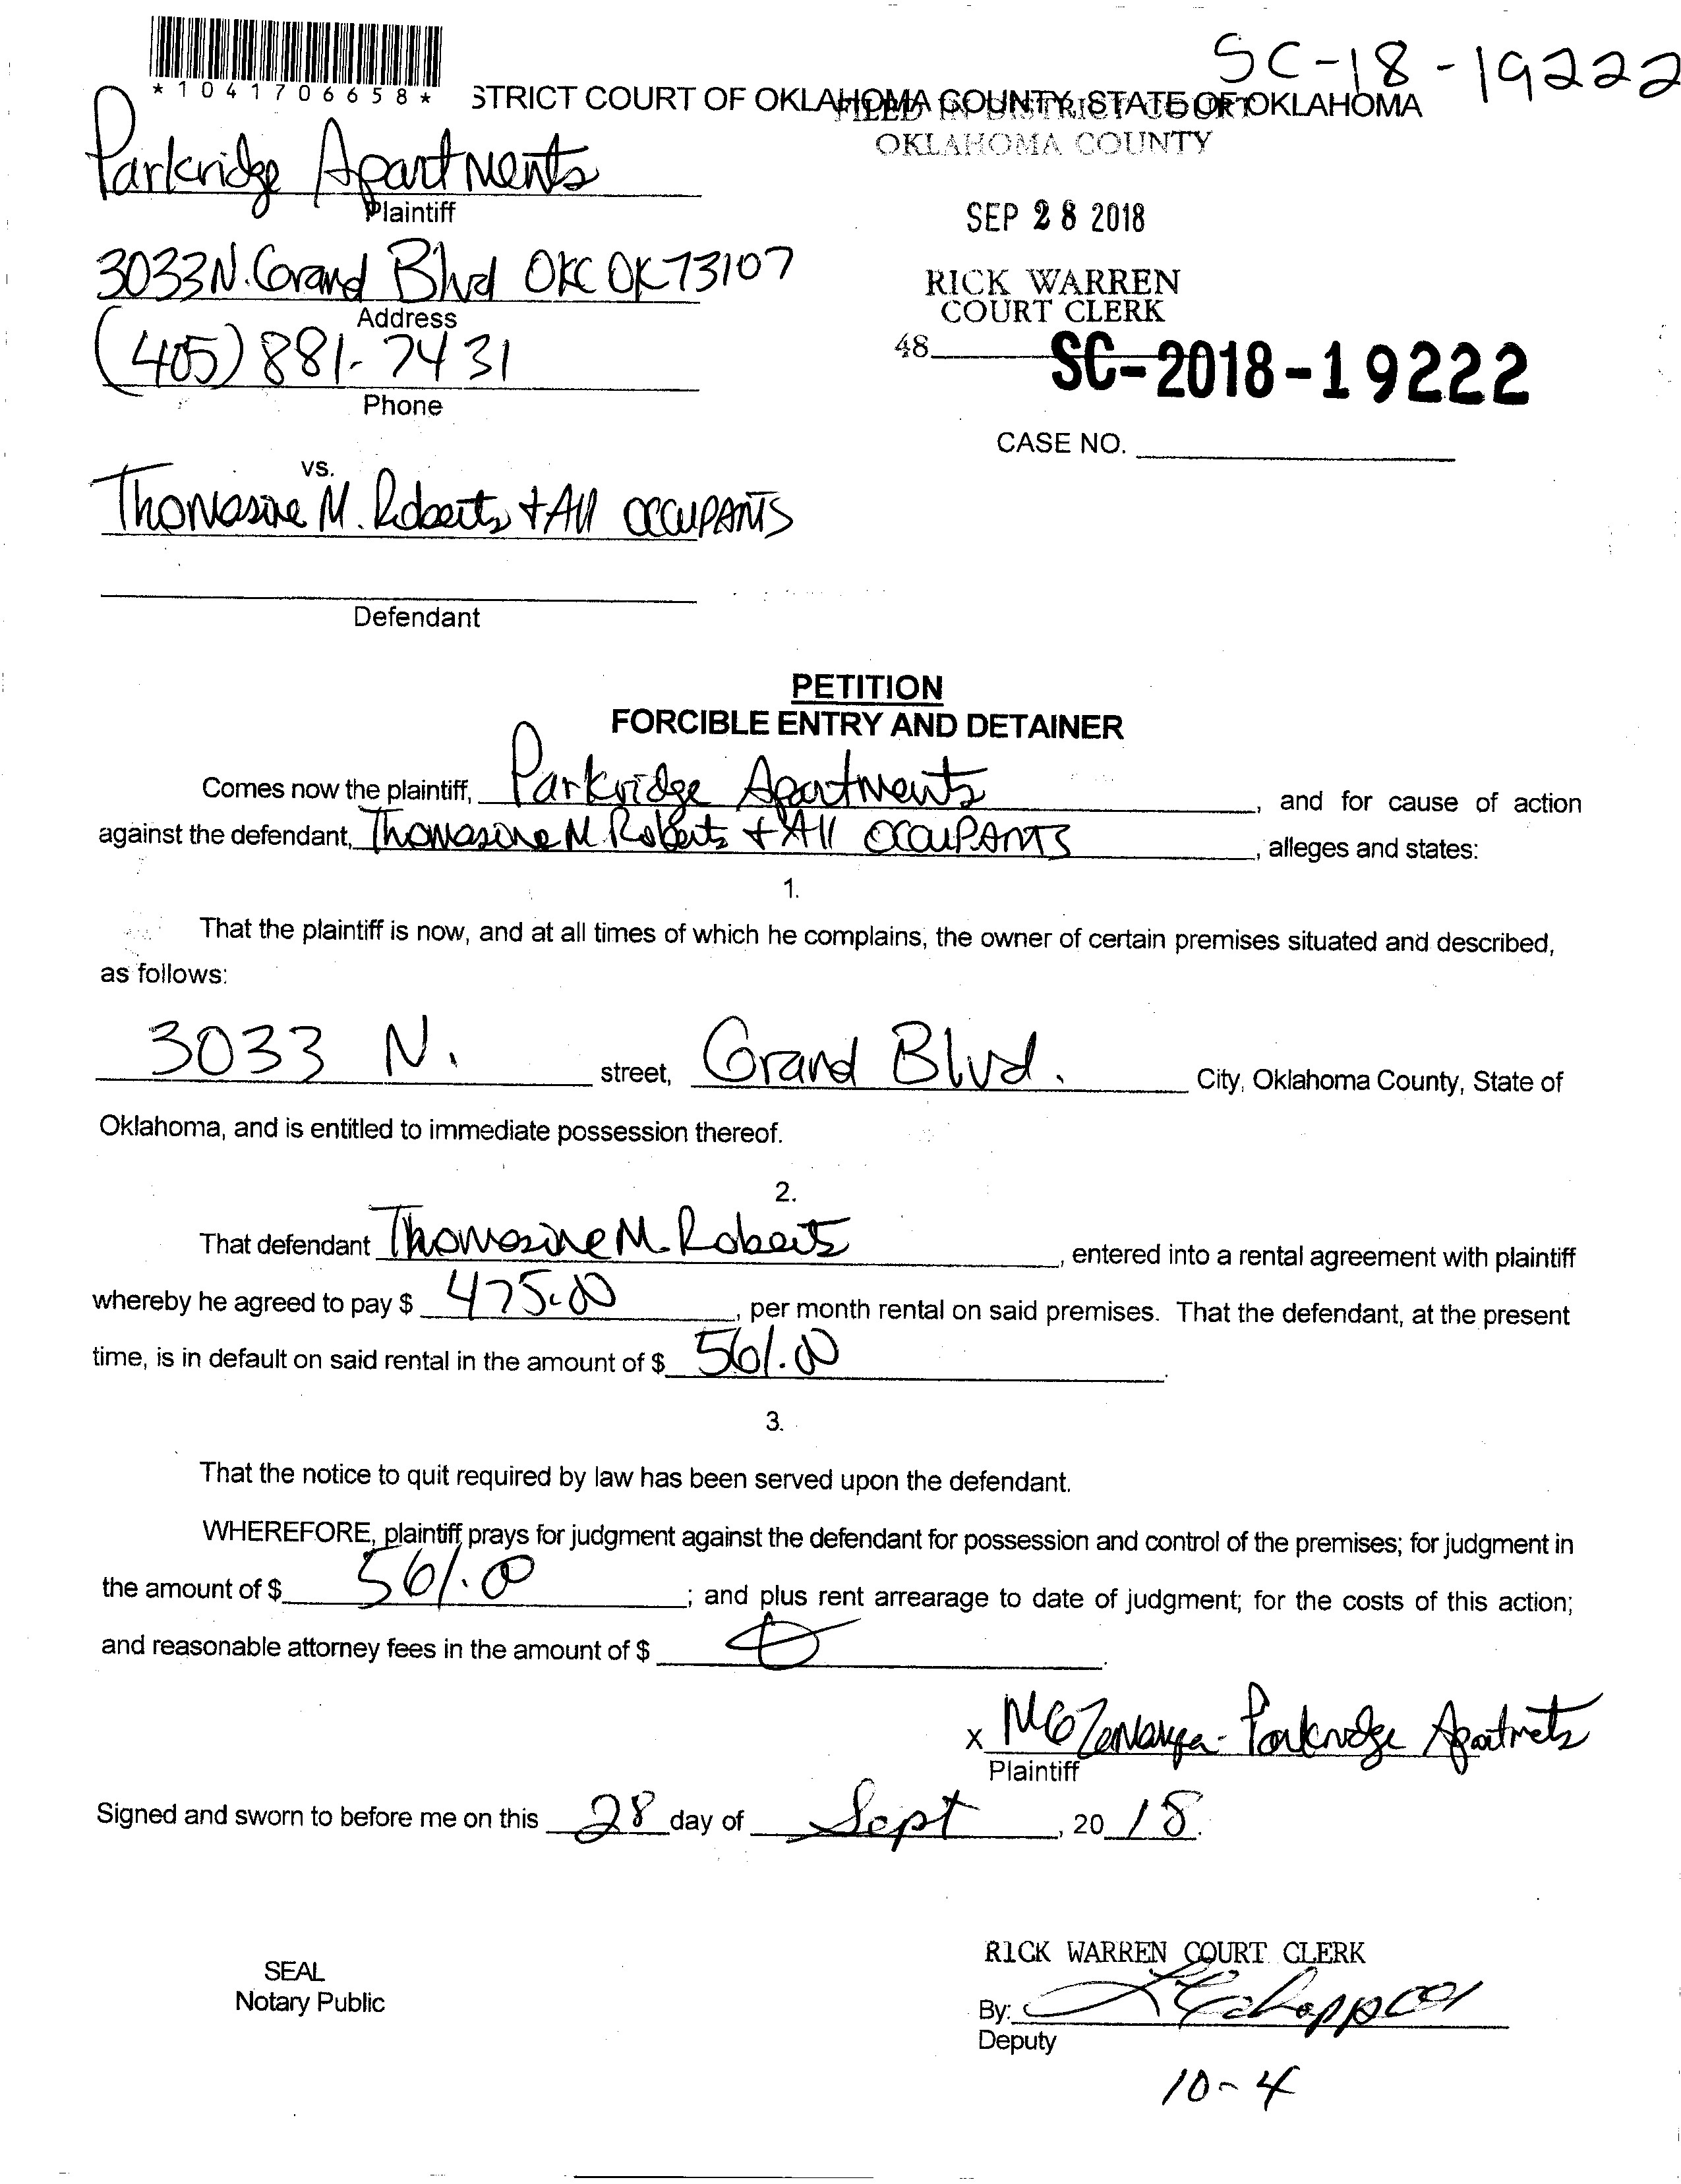 SC-18-19222
*1041706658*
STRICT COURT OF OKLAHOMA COUNTY, STATE OF OKLAHOMA
FILED IN DISTRICT COURT
OKLAHOMA COUNTY
Parkridge Apartments
Plaintiff
SEP 28 2018
3033 N. Grand Blvd OKC OK 73107
Address
RICK WARREN
COURT CLERK
(405) 881-7431
Phone
48
SC-2018-19222
CASE NO.
vs.
Thomasine M. Roberts + All OCCUPANTS
Defendant
PETITION
FORCIBLE ENTRY AND DETAINER
Comes now the plaintiff, Parkridge Apartments, and for cause of action
against the defendant, Thomasine M. Roberts + All OCCUPANTS, alleges and states:
1.
That the plaintiff is now, and at all times of which he complains, the owner of certain premises situated and described,
as follows:
3033 N. street, Grand Blvd. City, Oklahoma County, State of
Oklahoma, and is entitled to immediate possession thereof.
2.
That defendant Thomasine M. Roberts, entered into a rental agreement with plaintiff
whereby he agreed to pay $ 475.00, per month rental on said premises. That the defendant, at the present
time, is in default on said rental in the amount of $ 561.00.
3.
That the notice to quit required by law has been served upon the defendant.
WHEREFORE, plaintiff prays for judgment against the defendant for possession and control of the premises; for judgment in
the amount of $ 561.00; and plus rent arrearage to date of judgment; for the costs of this action;
and reasonable attorney fees in the amount of $
x Parkridge Apartments
Plaintiff
Signed and sworn to before me on this 28 day of Sept, 2018.
SEAL
Notary Public
RICK WARREN COURT CLERK
By:
Deputy
10-4